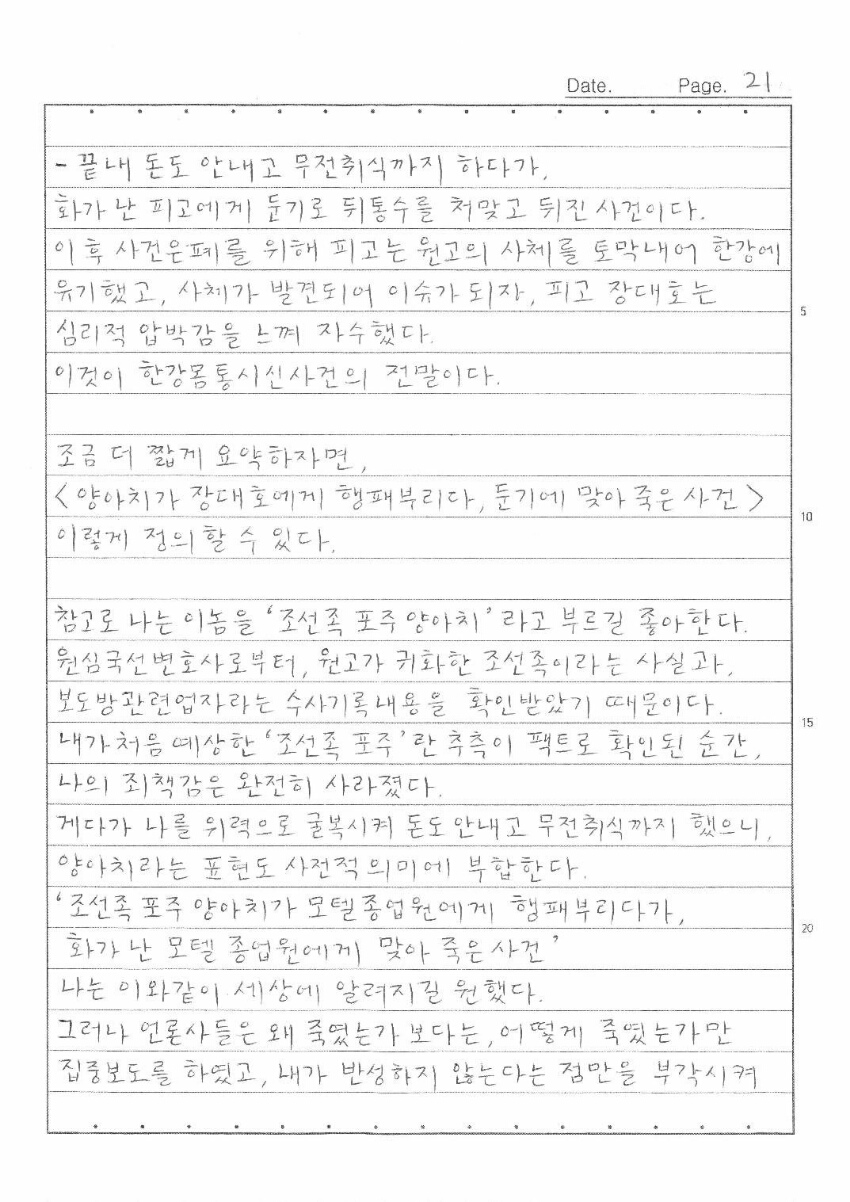 Date. Page. 21
- 끝내 돈도 안내고 무전취식까지 하다가,
화가 난 피고에게 둔기로 뒤통수를 처맞고 뒤진 사건이다.
이 후 사건은폐를 위해 피고는 원고의 사체를 토막내어 한강에
유기했고, 사체가 발견되어 이슈가 되자, 피고 장대호는
5
심리적 압박감을 느껴 자수했다.
이것이 한강몸통시신사건의 전말이다.
조금 더 짧게 요약하자면,
<양아치가 장대호에게 행패부리다, 둔기에 맞아 죽은 사건>
10
이렇게 정의 할 수 있다.
참고로 나는 이놈을 '조선족 포주 양아치' 라고 부르길 좋아한다.
원심국선변호사로부터, 원고가 귀화한 조선족이라는 사실과,
보도방관련업자라는 수사기록내용을 확인받았기 때문이다.
15
내가처음 예상한 '조선족 포주' 란 추측이 팩트로 확인된 순간,
나의 죄책감은 완전히 사라졌다.
게다가 나를 위력으로 굴복시켜 돈도 안내고 무전취식까지 했으니,
양아치라는 표현도 사전적 의미에 부합한다.
'조선족 포주 양아치가 모텔종업원에게 행패부리다가,
20
화가 난 모텔 종업원에게 맞아 죽은 사건'
나는 이와같이 세상에 알려지길 원했다.
그러나 언론사들은 왜 죽였는가 보다는, 어떻게 죽였는가만
집중보도를 하였고, 내가 반성하지 않는다는 점만을 부각시켜